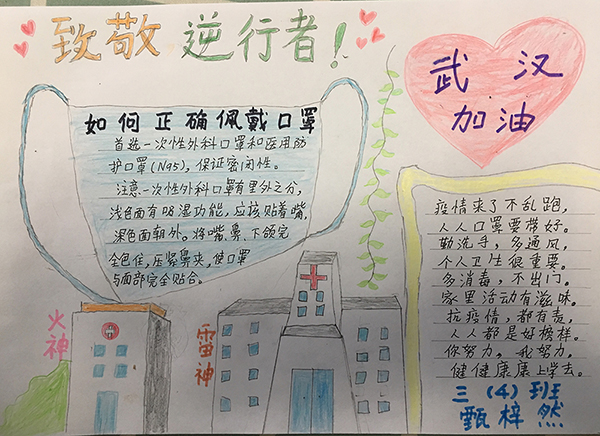 致敬 逆行者！
武 汉
加油
如何正确佩戴口罩
首选一次性外科口罩和医用防
护口罩(N95)，保证密闭性。
注意一次性外科口罩有里外之分，
浅色面有吸湿功能，应该贴着嘴，
深色面朝外。将嘴、鼻、下颌完
全包住，压紧鼻夹，使口罩
与面部完全贴合。
火神
雷神
疫情来了不乱跑，
人人口罩要带好。
勤洗手，多通风，
个人卫生很重要。
多消毒，不出门。
家里活动有滋味。
抗疫情，都有责，
人人都是好榜样。
你努力，我努力，
健健康康上学去。
三（4）班
甄梓然